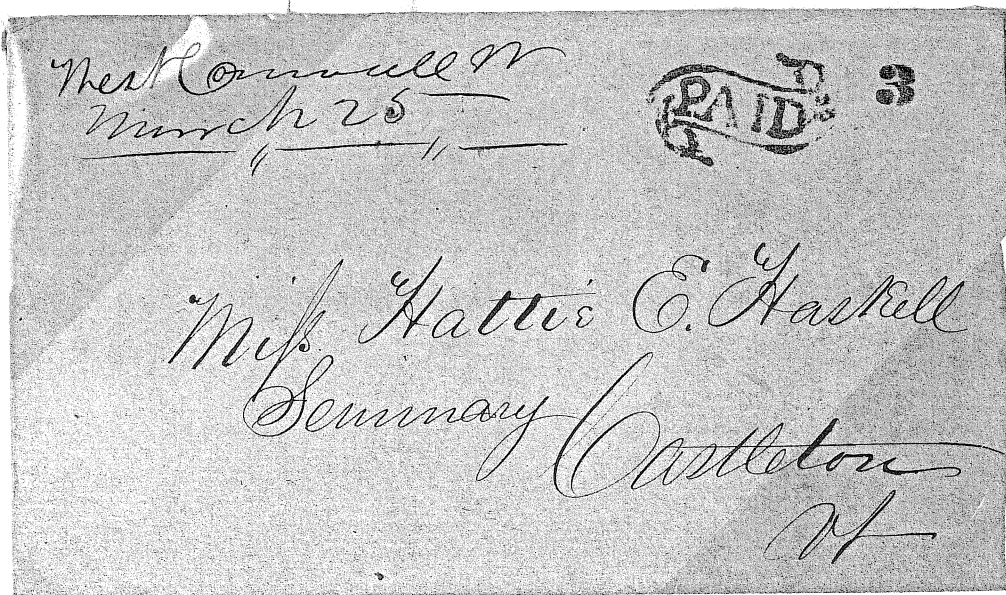 West Cornwall Vt
March 25
PAID 3
Miss Hattie E. Haskell
Seminary Castleton
Vt